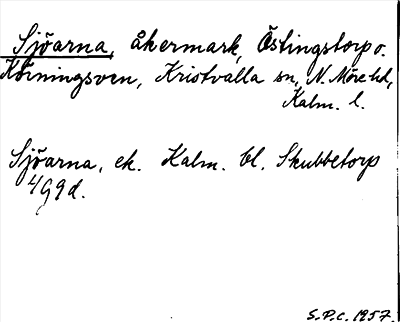 Sjöarna, åkermark, Östingstorp o.
Körningsven, Kristvalla sn, N. Möre hd,
Kalm. l.
Sjöarna, ek. Kalm. bl. Skubbetorp
4G9d.
S.P.C. 1957.